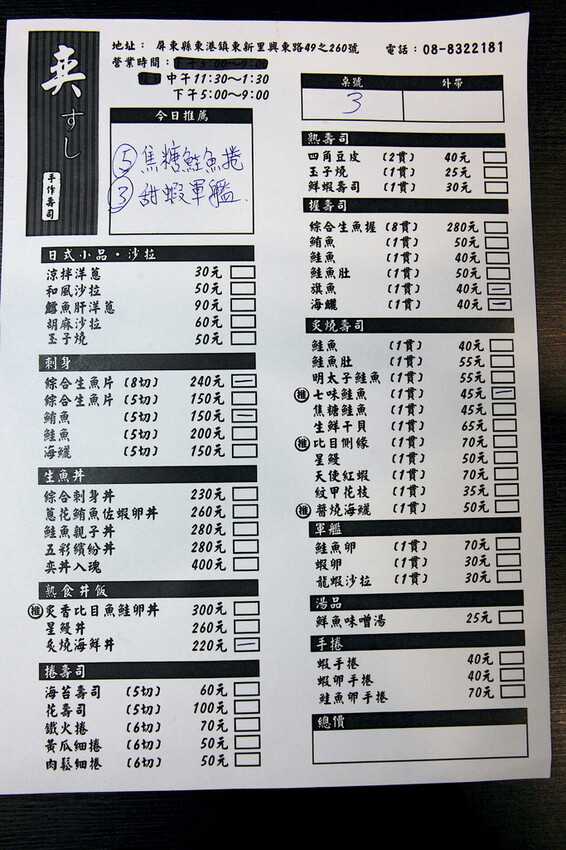 奕すし
手作壽司
地址： 屏東縣東港鎮東新里興東路49之260號 電話：08-8322181
營業時間：
中午11:30～1:30
下午5:00～9:00
今日推薦
⑤焦糖鮭魚捲
③甜蝦軍艦.
日式小品·沙拉
涼拌洋蔥 30元
和風沙拉 50元
鱈魚肝洋蔥 90元
胡麻沙拉 60元
玉子燒 50元
刺身
綜合生魚片 (8切) 240元 一
綜合生魚片 (5切) 150元
鮪魚 (5切) 150元 一
鮭魚 (5切) 200元
海鱺 (5切) 150元
生魚丼
綜合刺身丼 230元
蔥花鮪魚佐蝦卵丼 260元
鮭魚親子丼 280元
五彩繽紛丼 280元
奕丼入魂 400元
熟食丼飯
推 炙香比目魚鮭卵丼 300元
星鰻丼 260元
炙燒海鮮丼 220元 一
捲壽司
海苔壽司 (5切) 60元
花壽司 (5切) 100元
鐵火捲 (6切) 70元
黃瓜細捲 (6切) 50元
肉鬆細捲 (6切) 50元
桌號 外帶
3
熟壽司
四角豆皮 (2貫) 40元
玉子燒 (1貫) 25元
鮮蝦壽司 (1貫) 30元
握壽司
綜合生魚握 (8貫) 280元
鮪魚 (1貫) 50元
鮭魚 (1貫) 40元
鮭魚肚 (1貫) 50元
旗魚 (1貫) 40元 一
海鱺 (1貫) 40元 一
炙燒壽司
鮭魚 (1貫) 40元
鮭魚肚 (1貫) 55元
明太子鮭魚 (1貫) 55元
推 七味鮭魚 (1貫) 45元 一
焦糖鮭魚 (1貫) 45元
生鮮干貝 (1貫) 65元
推 比目側緣 (1貫) 70元
星鰻 (1貫) 50元
天使紅蝦 (1貫) 70元
紋甲花枝 (1貫) 35元
推 醬燒海鱺 (1貫) 50元
軍艦
鮭魚卵 (1貫) 70元
蝦卵 (1貫) 30元
龍蝦沙拉 (1貫) 30元
湯品
鮮魚味噌湯 25元
手捲
蝦手捲 40元
蝦卵手捲 40元
鮭魚卵手捲 70元
總價